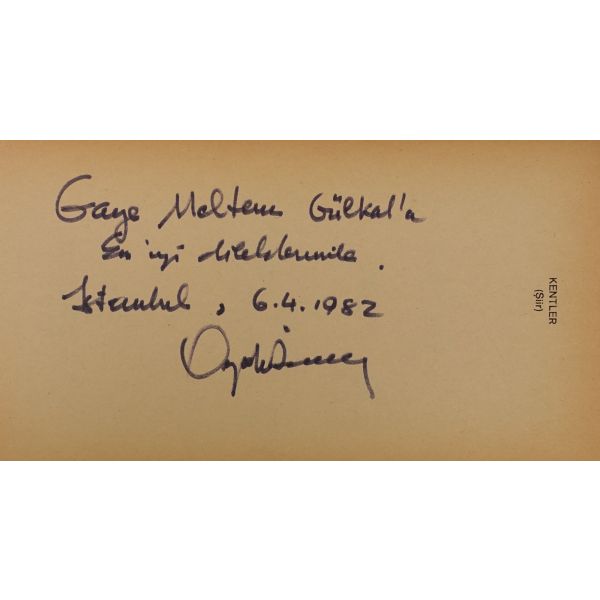 Gaye Meltem Gülkal'a
En iyi dileklerimle.
İstanbul, 6.4.1982
KENTLER
(Şiir)